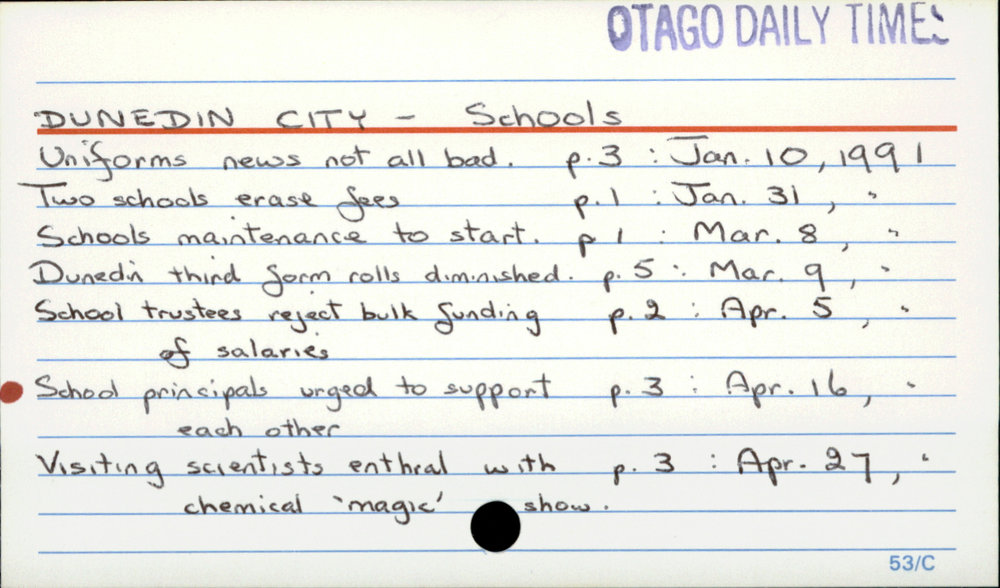 OTAGO DAILY TIMES
DUNEDIN CITY - Schools
Uniforms news not all bad. p.3 : Jan. 10, 1991
Two schools erase fees p.1 : Jan. 31, "
Schools maintenance to start. p 1 : Mar. 8, "
Dunedin third form rolls diminished. p. 5 : Mar. 9, "
School trustees reject bulk funding p. 2 : Apr. 5, "
of salaries
School principals urged to support p. 3 : Apr. 16, "
each other
Visiting scientists enthral with p. 3 : Apr. 27, "
chemical 'magic' show.
53/C